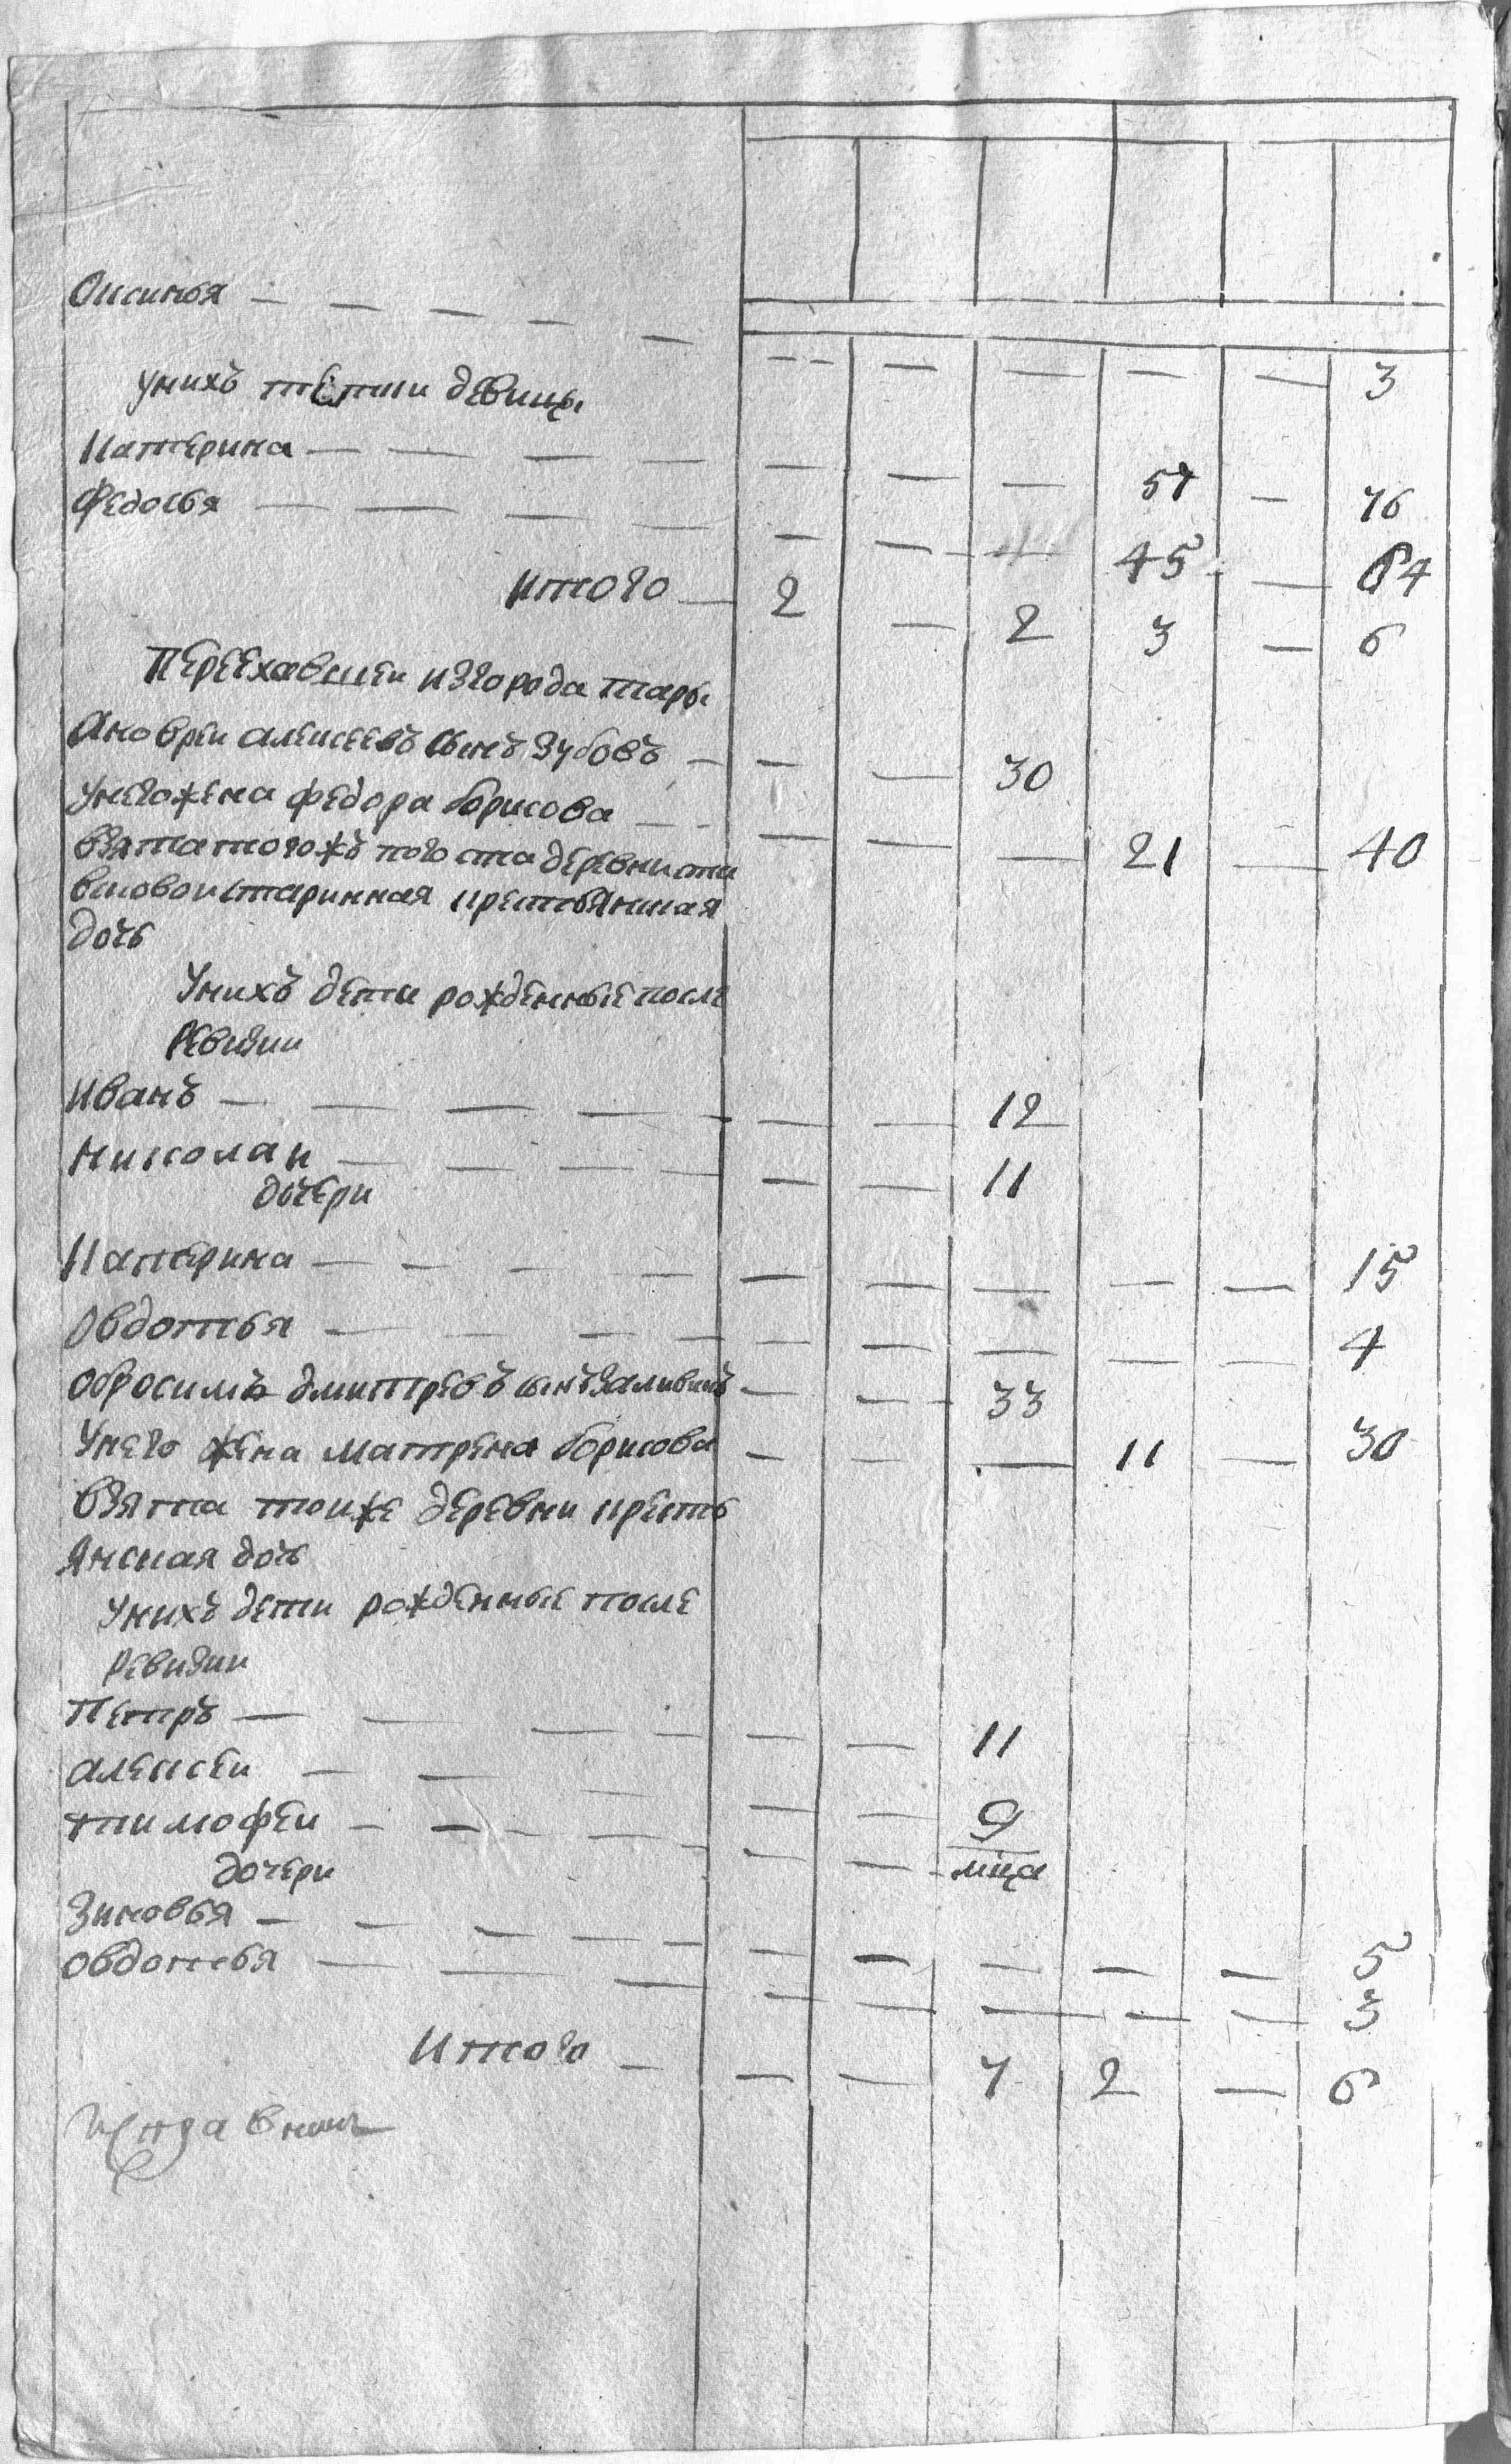 Оксинья — — — — — — — — — — 3
у нихъ тетки девицы
Катерина — — — — — — — 57 — 76
Федосья — — — — — — — 45 — 64
итого — 2 — 2 3 — 6
Переехавшеи изгорода тары
Андреи алексеевъ сынъ Зубовъ — — — 30
унегожена федора борисова — — — — — 21 — 40
взята тогожъ погоста деревни
старинная крестьянская
дочь
Унихъ дети рожденные после
ревизии
Иванъ — — — — — — — 12
Николаи — — — — — — 11
дочери
Катерина — — — — — — — — — 15
Овдотья — — — — — — — — — 4
обросимъ дмитревъ сынъ — — 33
Унего жена матрена борисова — — — 11 — 30
Взята тоиже деревни кресть
янская дочь
Унихъ дети рожденные после
Ревизии
Петръ — — — — — — 11
алексеи — — — — — 9
тимофеи — — — — — — мца
дочери
Зиновья — — — — — — — — — — 5
овдотья — — — — — — — — 3
Итого — — — 7 2 — 6